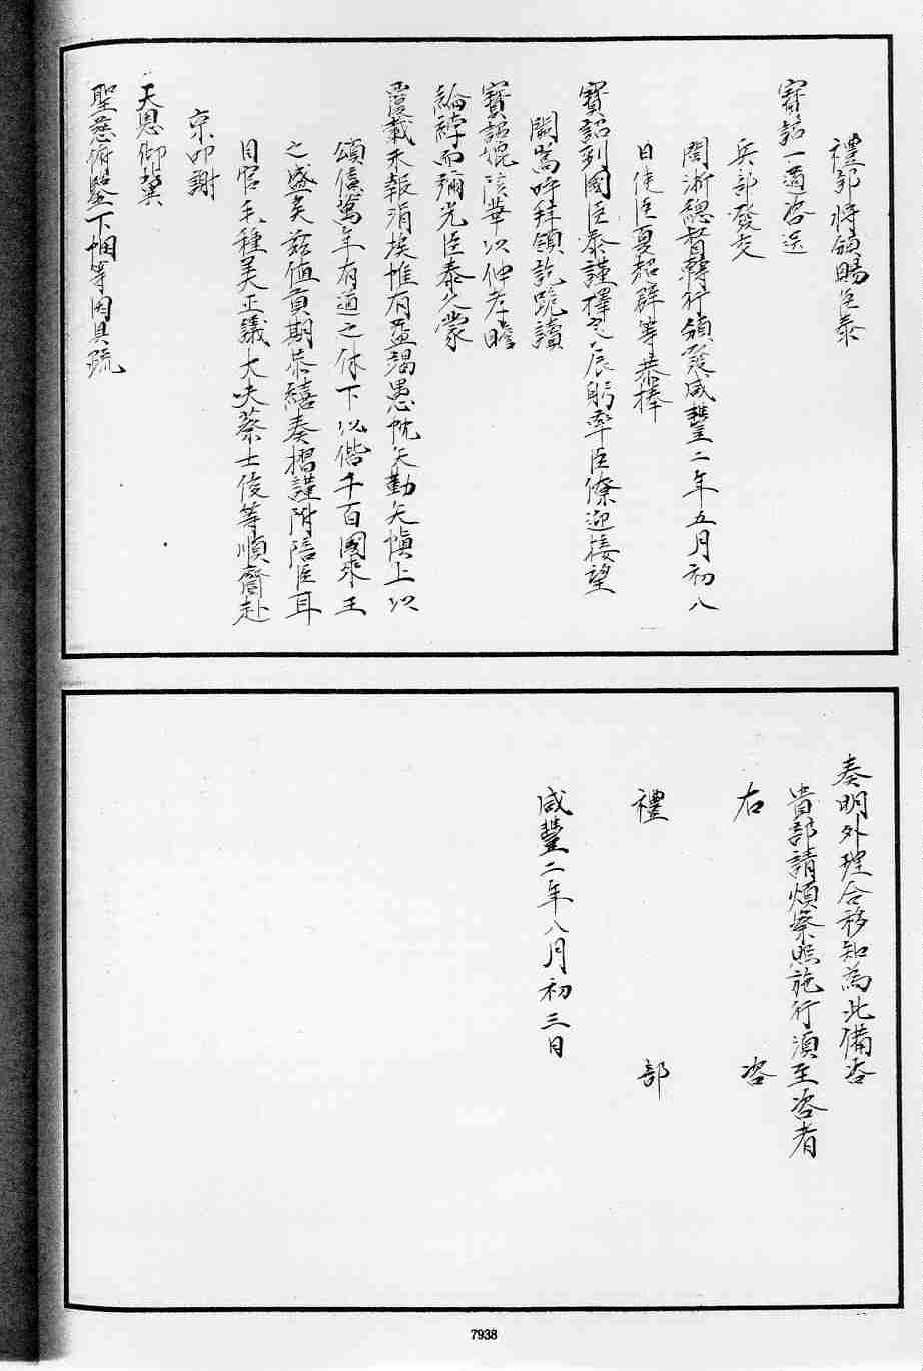 禮部將頒賜臣泰
寶詔一道咨送
兵部發交
閩浙總督轉行頒發咸豐二年五月初八
日使臣夏超群等恭捧
寶詔到國臣泰謹擇之辰躬率臣僚迎接望
闕嵩呼拜領訖跪讀
寶詔焜陔華以仲孝瞻
綸綍而彌光臣泰久蒙
覆載未報涓埃惟有益竭愚忱矢勤矢慎上以
頌億萬年有道之休下以偕千百國來王
之盛矣茲值貢期恭繕奏摺謹附陪臣耳
目官毛種美正議大夫蔡士俊等順齎赴
京叩謝
天恩仰冀
聖慈俯鑒下悃等因具疏
奏明外理合移知為此備咨
貴部請煩察照施行須至咨者
右咨
禮部
咸豐二年八月初三日
7938